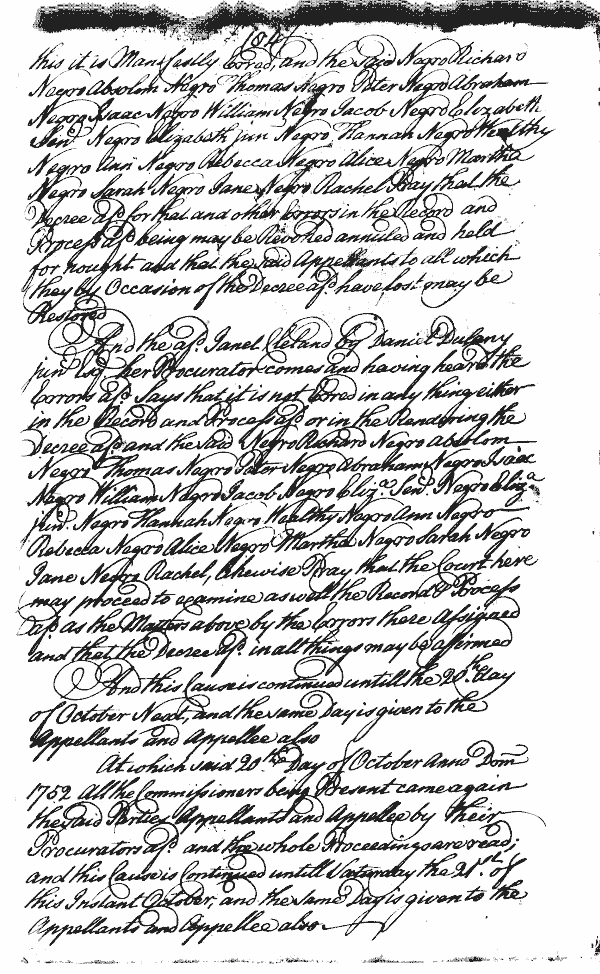 104
this it is Manifestly Erred, and the said Negro Richard
Negro Absolom Negro Thomas Negro Peter Negro Abraham
Negro Isaac Negro William Negro Jacob Negro Elizabeth
Senr. Negro Elizabeth junr Negro Hannah Negro Wealthy
Negro Ann Negro Rebecca Negro Alice Negro Martha
Negro Sarah Negro Jane Negro Rachel Pray that the
Decree afd. for that and other Errors in the Record and
Process afd. being may be Revoked annuled and held
for nought and that the said Appellants to all which
they by Occasion of the Decree afd. have lost may be
Restored
And the afd. Janet Cleland by Daniel Dulany
junr. Esqr. her Procurator comes and having heard the
Errors afd. Says that it is not Erred in any thing either
in the Record and Process afd. or in the Rendering the
Decree afd. and the said Negro Richard Negro absolom
Negro Thomas Negro Peter Negro Abraham Negro Isaac
Negro William Negro Jacob Negro Eliza. Senr. Negro Eliza
junr. Negro Hannah Negro Wealthy Negro Ann Negro
Rebecca Negro Alice Negro Martha Negro Sarah Negro
Jane Negro Rachel, likewise Pray that the Court here
may proceed to examine as well the Record & Process
afd. as the Matters above by the Errors there Assigned
and that the Decree afd. in all things may be affirmed
And this Cause is continued untill the 20th. day
of October Next, and the same Day is given to the
Appellants and Appellee also
At which said 20th Day of October Anno Dom
1752 All the Commissioners being Present came again
the said Parties Appellants and Appellee by their
Procurators afd. and the whole Proceedings are read;
and this Cause is Continued untill Saturday the 21st. of
this Instant October, and the same Day is given to the
Appellants and Appellee also